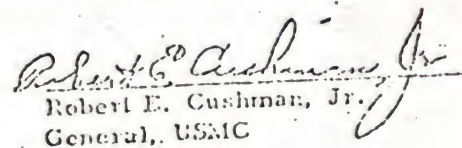 Robert E. Cushman, Jr.
Robert E. Cushman, Jr.
General, USMC